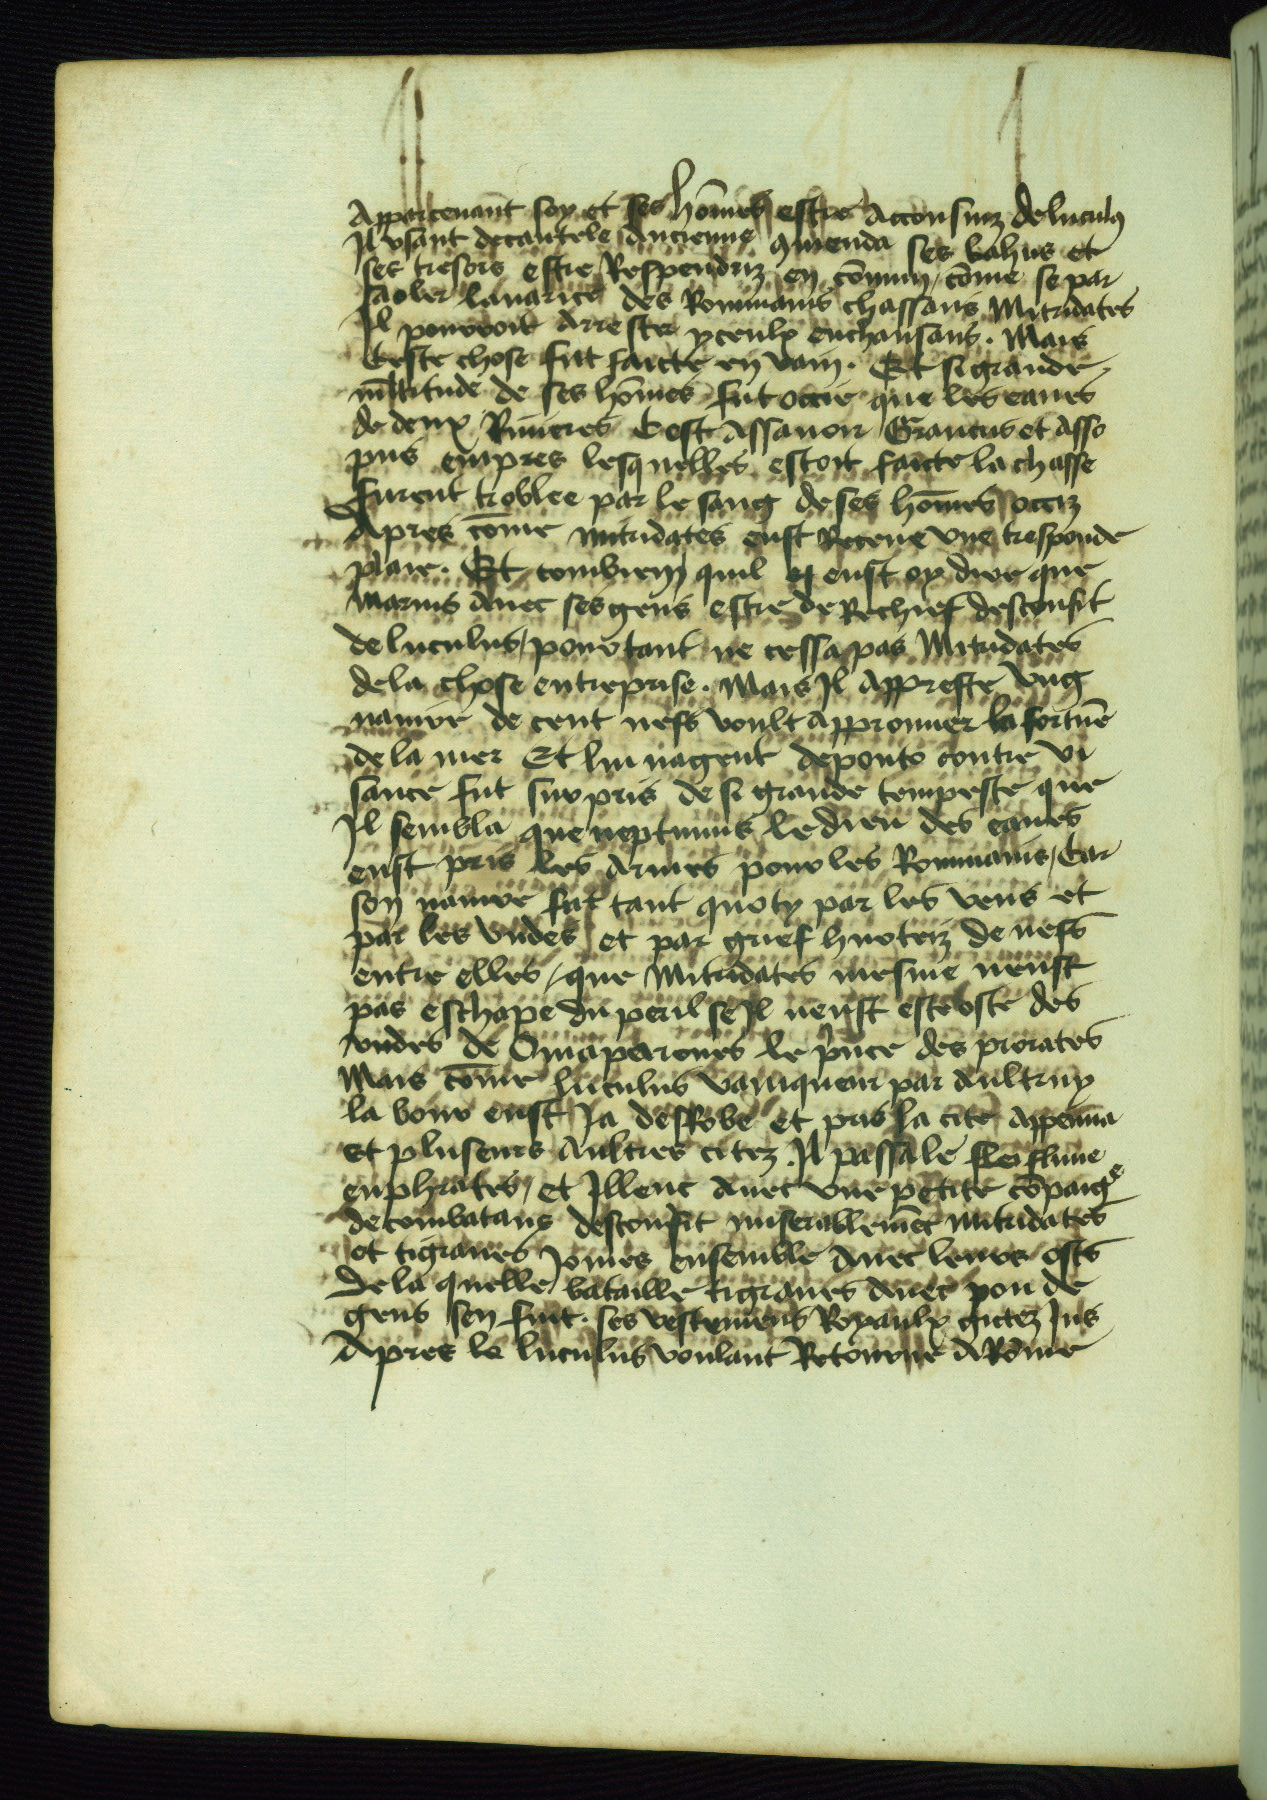 Apparcenant soy et ses hōmes estre Acconsuiz de lucul9
Il vsant de cautele Ancienne 9menda ses bahus et
ses tresors estre Respenduz en cōmun, cōme se par
saoler lauarice des Rommains chassans Mitridates
Il pourroit Arrester yceulx enchaussans. Mais
Ceste chose fut faicte en vain. Et si grande
mltitude de ses hōmes fut occie que les eaues
de deux Riuieres Cest Assauoir Granicus et Asso
pus empres lesquelles estoit faicte la chasse
furent troblee par le sang de ses hōmes occiz
Apres cōme mitridates eust Receue vne tresponde
plaie. Et combien quil eust oy dire que
Marius Auec ses gens estre de Rechief desconfit
de luculus, pourtant ne cessa pas Mitridates
de la chose entreprise. Mais Il Appreste vng
nauire de cent nefs voult Approuuer la fortūe
de la mer Et lui nagent de ponto contre vi
sance fut surpris de si grande tempeste que
Il sembla que neptunus le dieu des eaues
eust pris les Armes pour les Rommains, Car
son nauire fut tant quoty par les vens et
par les vndes et par grief hurteiz de nefs
entre elles, que Mitridates mesme neust
pas eschape du peril se Il neust este oste des
vndes de Omaperones le pnce des pirates
Mais cōme luculus vainqueur par Aultruy
la bour eust Ja desrobe et pris la cite Appamia
et pluseurs Aultres citez. Il passa le fleu fluue
euphrates, et Illeuc Auec vne petite cōpaige
de combatans desconfit miserablemēt mitridates
et tigranes Joines ensemble Auec leurs osts
De la quelle bataille tigranes Auec pou de
gens sen fuit. ses vestemens Royaulx gictez Jus
Apres le luculus voulant Retourne A Rōme